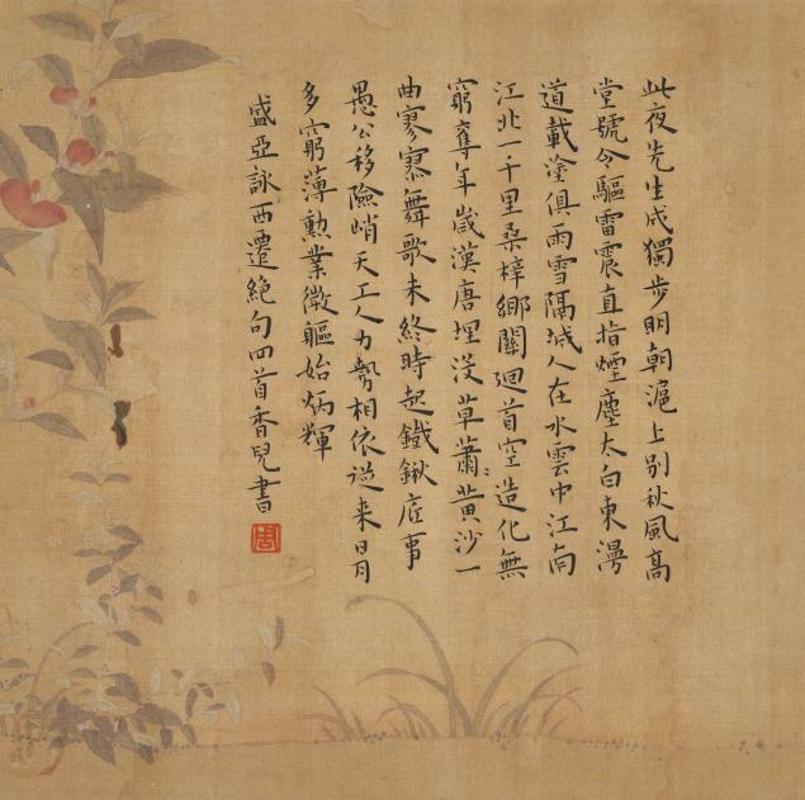 此夜先生成獨步明朝滬上别秋風高
堂號令驅雷震直指煙塵太白東漫
道載塗俱雨雪隔城人在水雲中江南
江北一千里桑梓鄉關迴首空造化無
窮奪年歲漢唐埋没草蕭〻黄沙一
曲寥寥舞歌未終時起鐵鍬底事
愚公移險峭天工人力勢相依從来日月
多窮薄勲業微軀始炳輝
盛亞詠西遷絶句四首香兒書
周